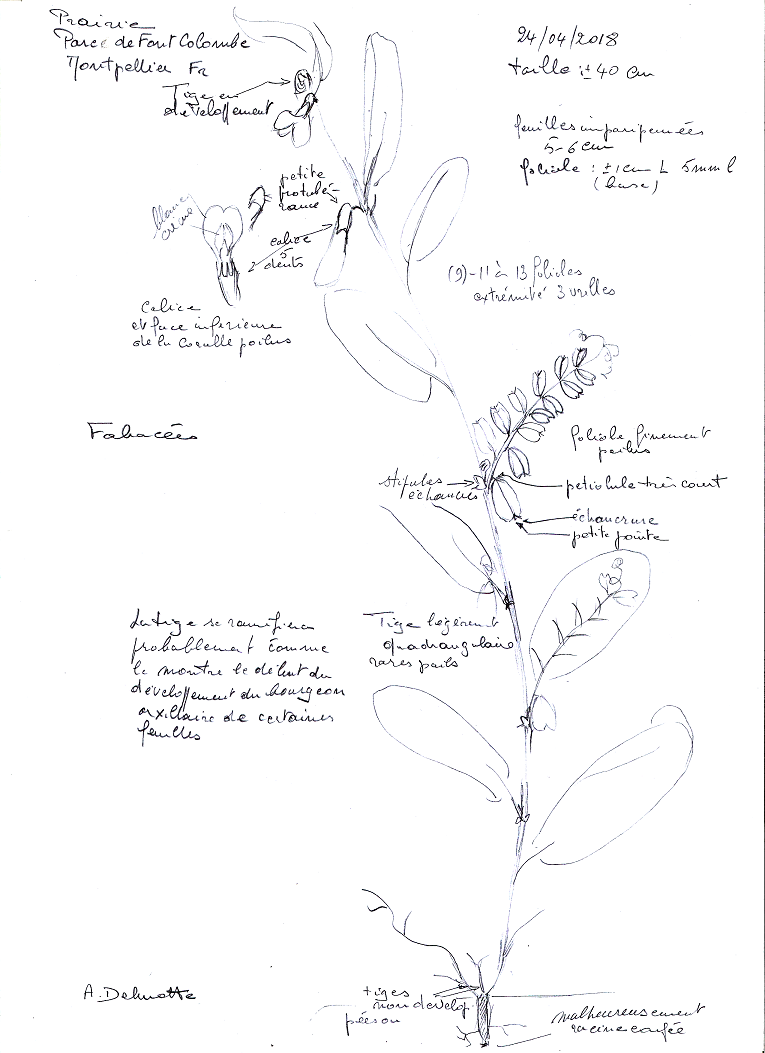 Prairie
Parc de Font Colombe
Montpellier Fr
24/04/2018
taille : ± 40 cm
Tige en
développement
feuilles imparipennées
5-6 cm
foliole : ± 1 cm L 5 mm l
(base)
petite
protubé-
rance
blanc
crème
calice
5
dents
2
Calice
et face inférieure
de la corolle poilus
(9)-11 à 13 folioles
extrémité 3 vrilles
Fabacées
foliole finement
poilus
stipules
échancrés
petiolule très court
échancrure
petite pointe
La tige se ramifiera
probablement comme
le montre le début du
développement du bourgeon
axillaire de certaines
feuilles
Tige légèremt
quadrangulaire
rares poils
A. Delmotte
tiges
non dévelop
pées ou
malheureusement
racine coupée